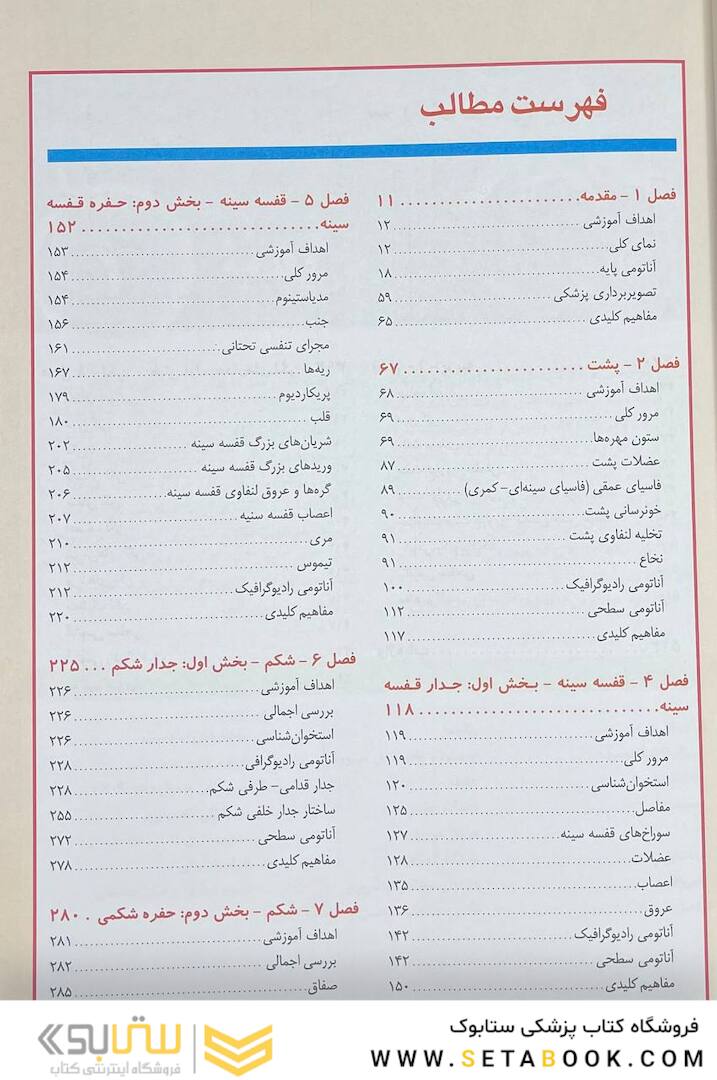 فهرست مطالب
فصل ۱ – مقدمه ۱۱
اهداف آموزشی ۱۲
نمای کلی ۱۲
آناتومی پایه ۱۸
تصویربرداری پزشکی ۵۹
مفاهیم کلیدی ۶۵
فصل ۲ – پشت ۶۷
اهداف آموزشی ۶۸
مرور کلی ۶۹
ستون مهره‌ها ۶۹
عضلات پشت ۸۷
فاسیای عمقی (فاسیای سینه‌ای– کمری) ۸۹
خونرسانی پشت ۹۰
تخلیه لنفاوی پشت ۹۱
نخاع ۹۱
آناتومی رادیوگرافیک ۱۰۰
آناتومی سطحی ۱۱۲
مفاهیم کلیدی ۱۱۷
فصل ۴ – قفسه سینه – بخش اول: جدار قفسه
سینه ۱۱۸
اهداف آموزشی ۱۱۹
مرور کلی ۱۱۹
استخوان‌شناسی ۱۲۰
مفاصل ۱۲۵
سوراخ‌های قفسه سینه ۱۲۷
عضلات ۱۲۸
اعصاب ۱۳۵
عروق ۱۳۶
آناتومی رادیوگرافیک ۱۴۲
آناتومی سطحی ۱۴۲
مفاهیم کلیدی ۱۵۰
فصل ۵ – قفسه سینه – بخش دوم: حفره قفسه
سینه ۱۵۲
اهداف آموزشی ۱۵۳
مرور کلی ۱۵۴
مدیاستینوم ۱۵۴
جنب ۱۵۶
مجرای تنفسی تحتانی ۱۶۱
ریه‌ها ۱۶۷
پریکاردیوم ۱۷۹
قلب ۱۸۰
شریان‌های بزرگ قفسه سینه ۲۰۲
وریدهای بزرگ قفسه سینه ۲۰۵
گره‌ها و عروق لنفاوی قفسه سینه ۲۰۶
اعصاب قفسه سنیه ۲۰۷
مری ۲۱۰
تیموس ۲۱۲
آناتومی رادیوگرافیک ۲۱۲
مفاهیم کلیدی ۲۲۰
فصل ۶ – شکم – بخش اول: جدار شکم ۲۲۵
اهداف آموزشی ۲۲۶
بررسی اجمالی ۲۲۶
استخوان‌شناسی ۲۲۶
آناتومی رادیوگرافی ۲۲۸
جدار قدامی– طرفی شکم ۲۲۸
ساختار جدار خلفی شکم ۲۵۵
آناتومی سطحی ۲۷۲
مفاهیم کلیدی ۲۷۸
فصل ۷ – شکم – بخش دوم: حفره شکمی ۲۸۰
اهداف آموزشی ۲۸۱
بررسی اجمالی ۲۸۲
صفاق ۲۸۵
فروشگاه کتاب پزشکی ستابوک
WWW.SETABOOK.COM
ستابوک
فروشگاه اینترنتی کتاب